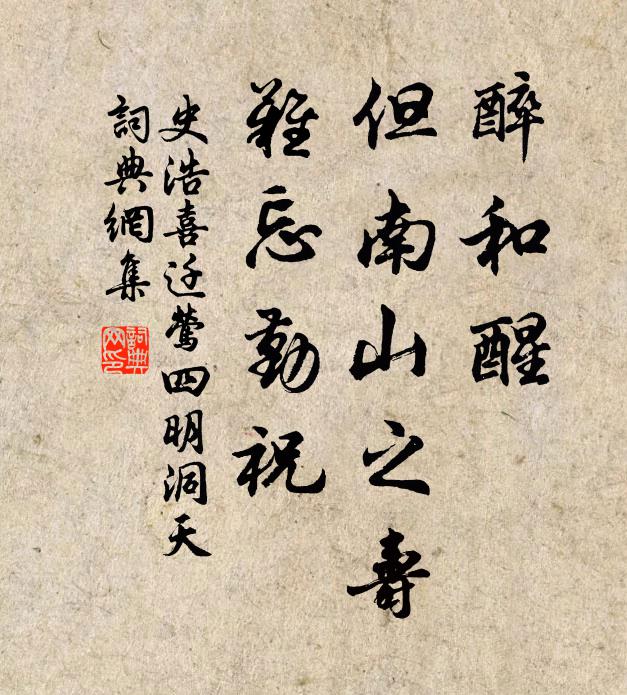 醉和醒
但南山之壽
難忘勤祝
史浩喜迁鶯四明洞天
詞典網集
詞典網印